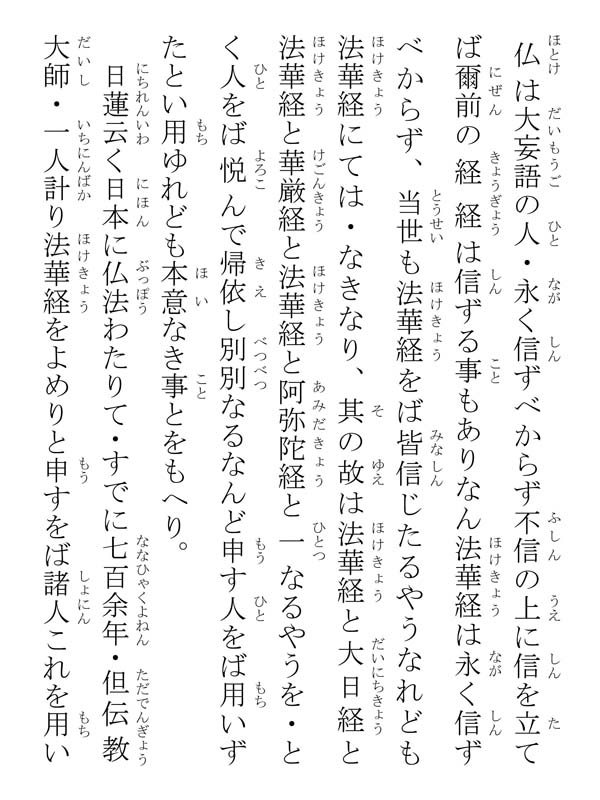 仏は大妄語の人・永く信ずべからず不信の上に信を立て
ば爾前の経経は信ずる事もありなん法華経は永く信ず
べからず、当世も法華経をば皆信じたるやうなれども
法華経にては・なきなり、其の故は法華経と大日経と
法華経と華厳経と法華経と阿弥陀経と一なるやうを・と
く人をば悦んで帰依し別別なるなんど申す人をば用いず
たとい用ゆれども本意なき事とをもへり。
日蓮云く日本に仏法わたりて・すでに七百余年・但伝教
大師・一人計り法華経をよめりと申すをば諸人これを用い